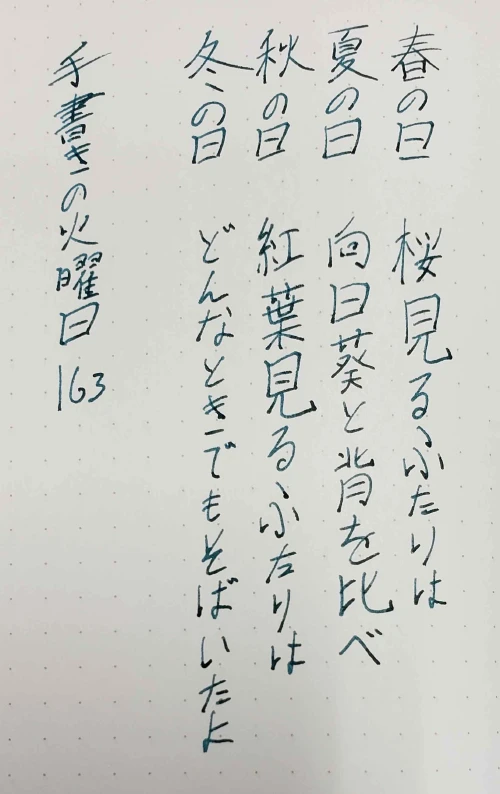 春の日　桜見るふたりは
夏の日　向日葵と背を比べ
秋の日　紅葉見るふたりは
冬の日　どんなときでもそばいたよ
手書きの火曜日 163